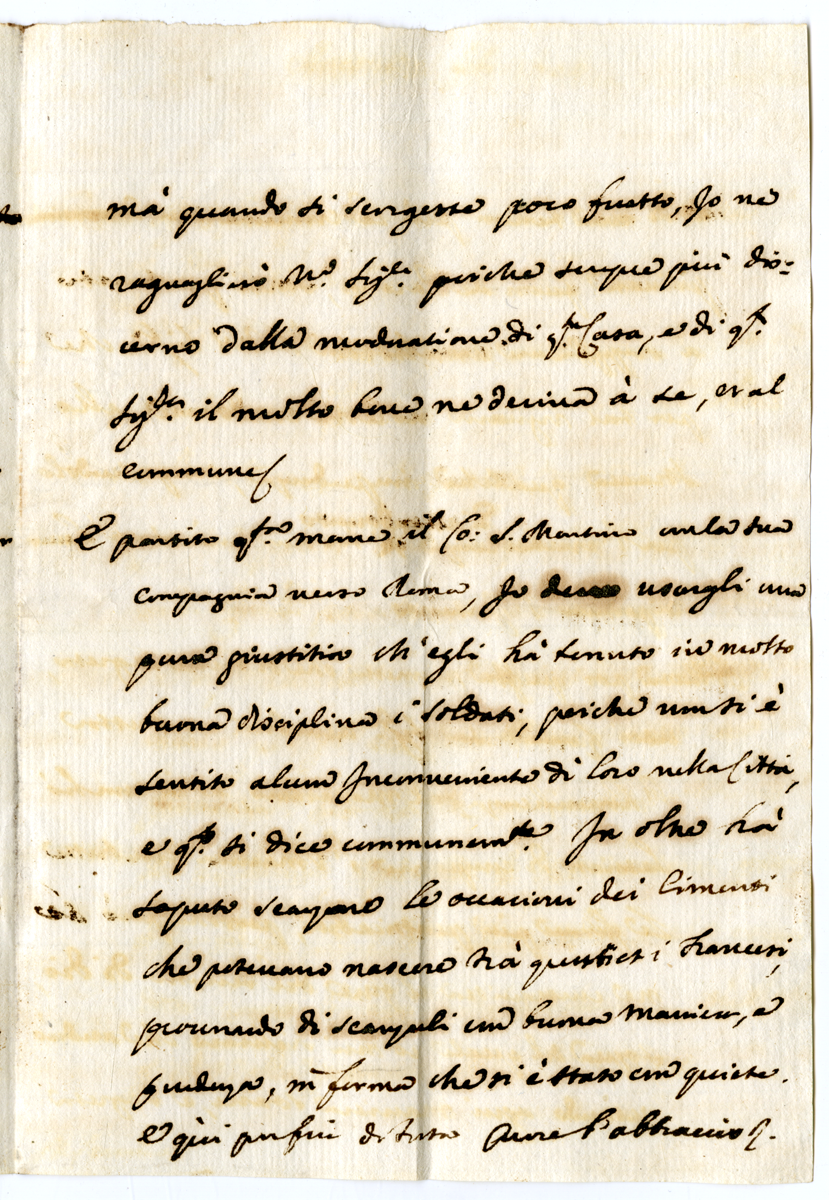 mà quando si scorgesse poco frutto, Jo ne
raguagliarò N.ro Sig.re perche sempre più dis=
cerno dalla moderatione di q.ta Casa, e di q.ti
Sig.ri il molto bene ne deriva à se, et al
commune
È partito q.sta mane il Co: S. Martino con la sua
compagnia verso Roma, Jo devo usargli una
pura giustitia ch'egli hà tenuto in molto
buona disciplina i soldati, perche non si è
sentito alcun Inconveniente di loro nella Città,
e q.to si dice communem.te In oltre hà
saputo scappare le occasioni dei Cimenti
che potevano nascere trà questi et i francesi,
procurando di scamparli con buona maniera, e
prudenza, in forma che si è stato con quiete.
E qui per fine di tutto Cuore l'abbraccio